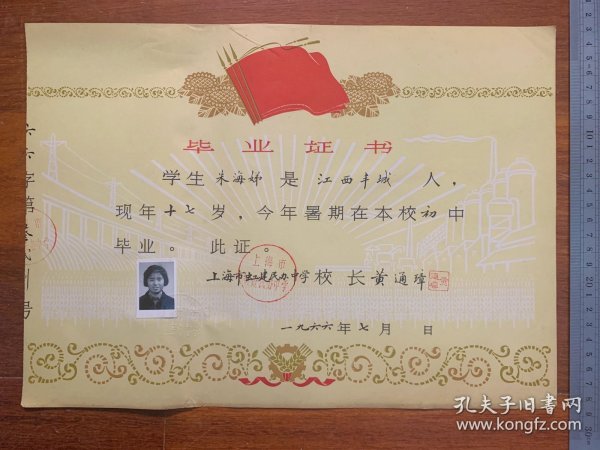 毕业证书
学生朱海娣是江西丰城人，
现年十七岁，今年暑期在本校初中
毕业。此证。
上海市虹建民办中学校长黄通璋
一九六六年七月 日
六六字第 号
上海市
孔夫子旧书网
www.kongfz.com